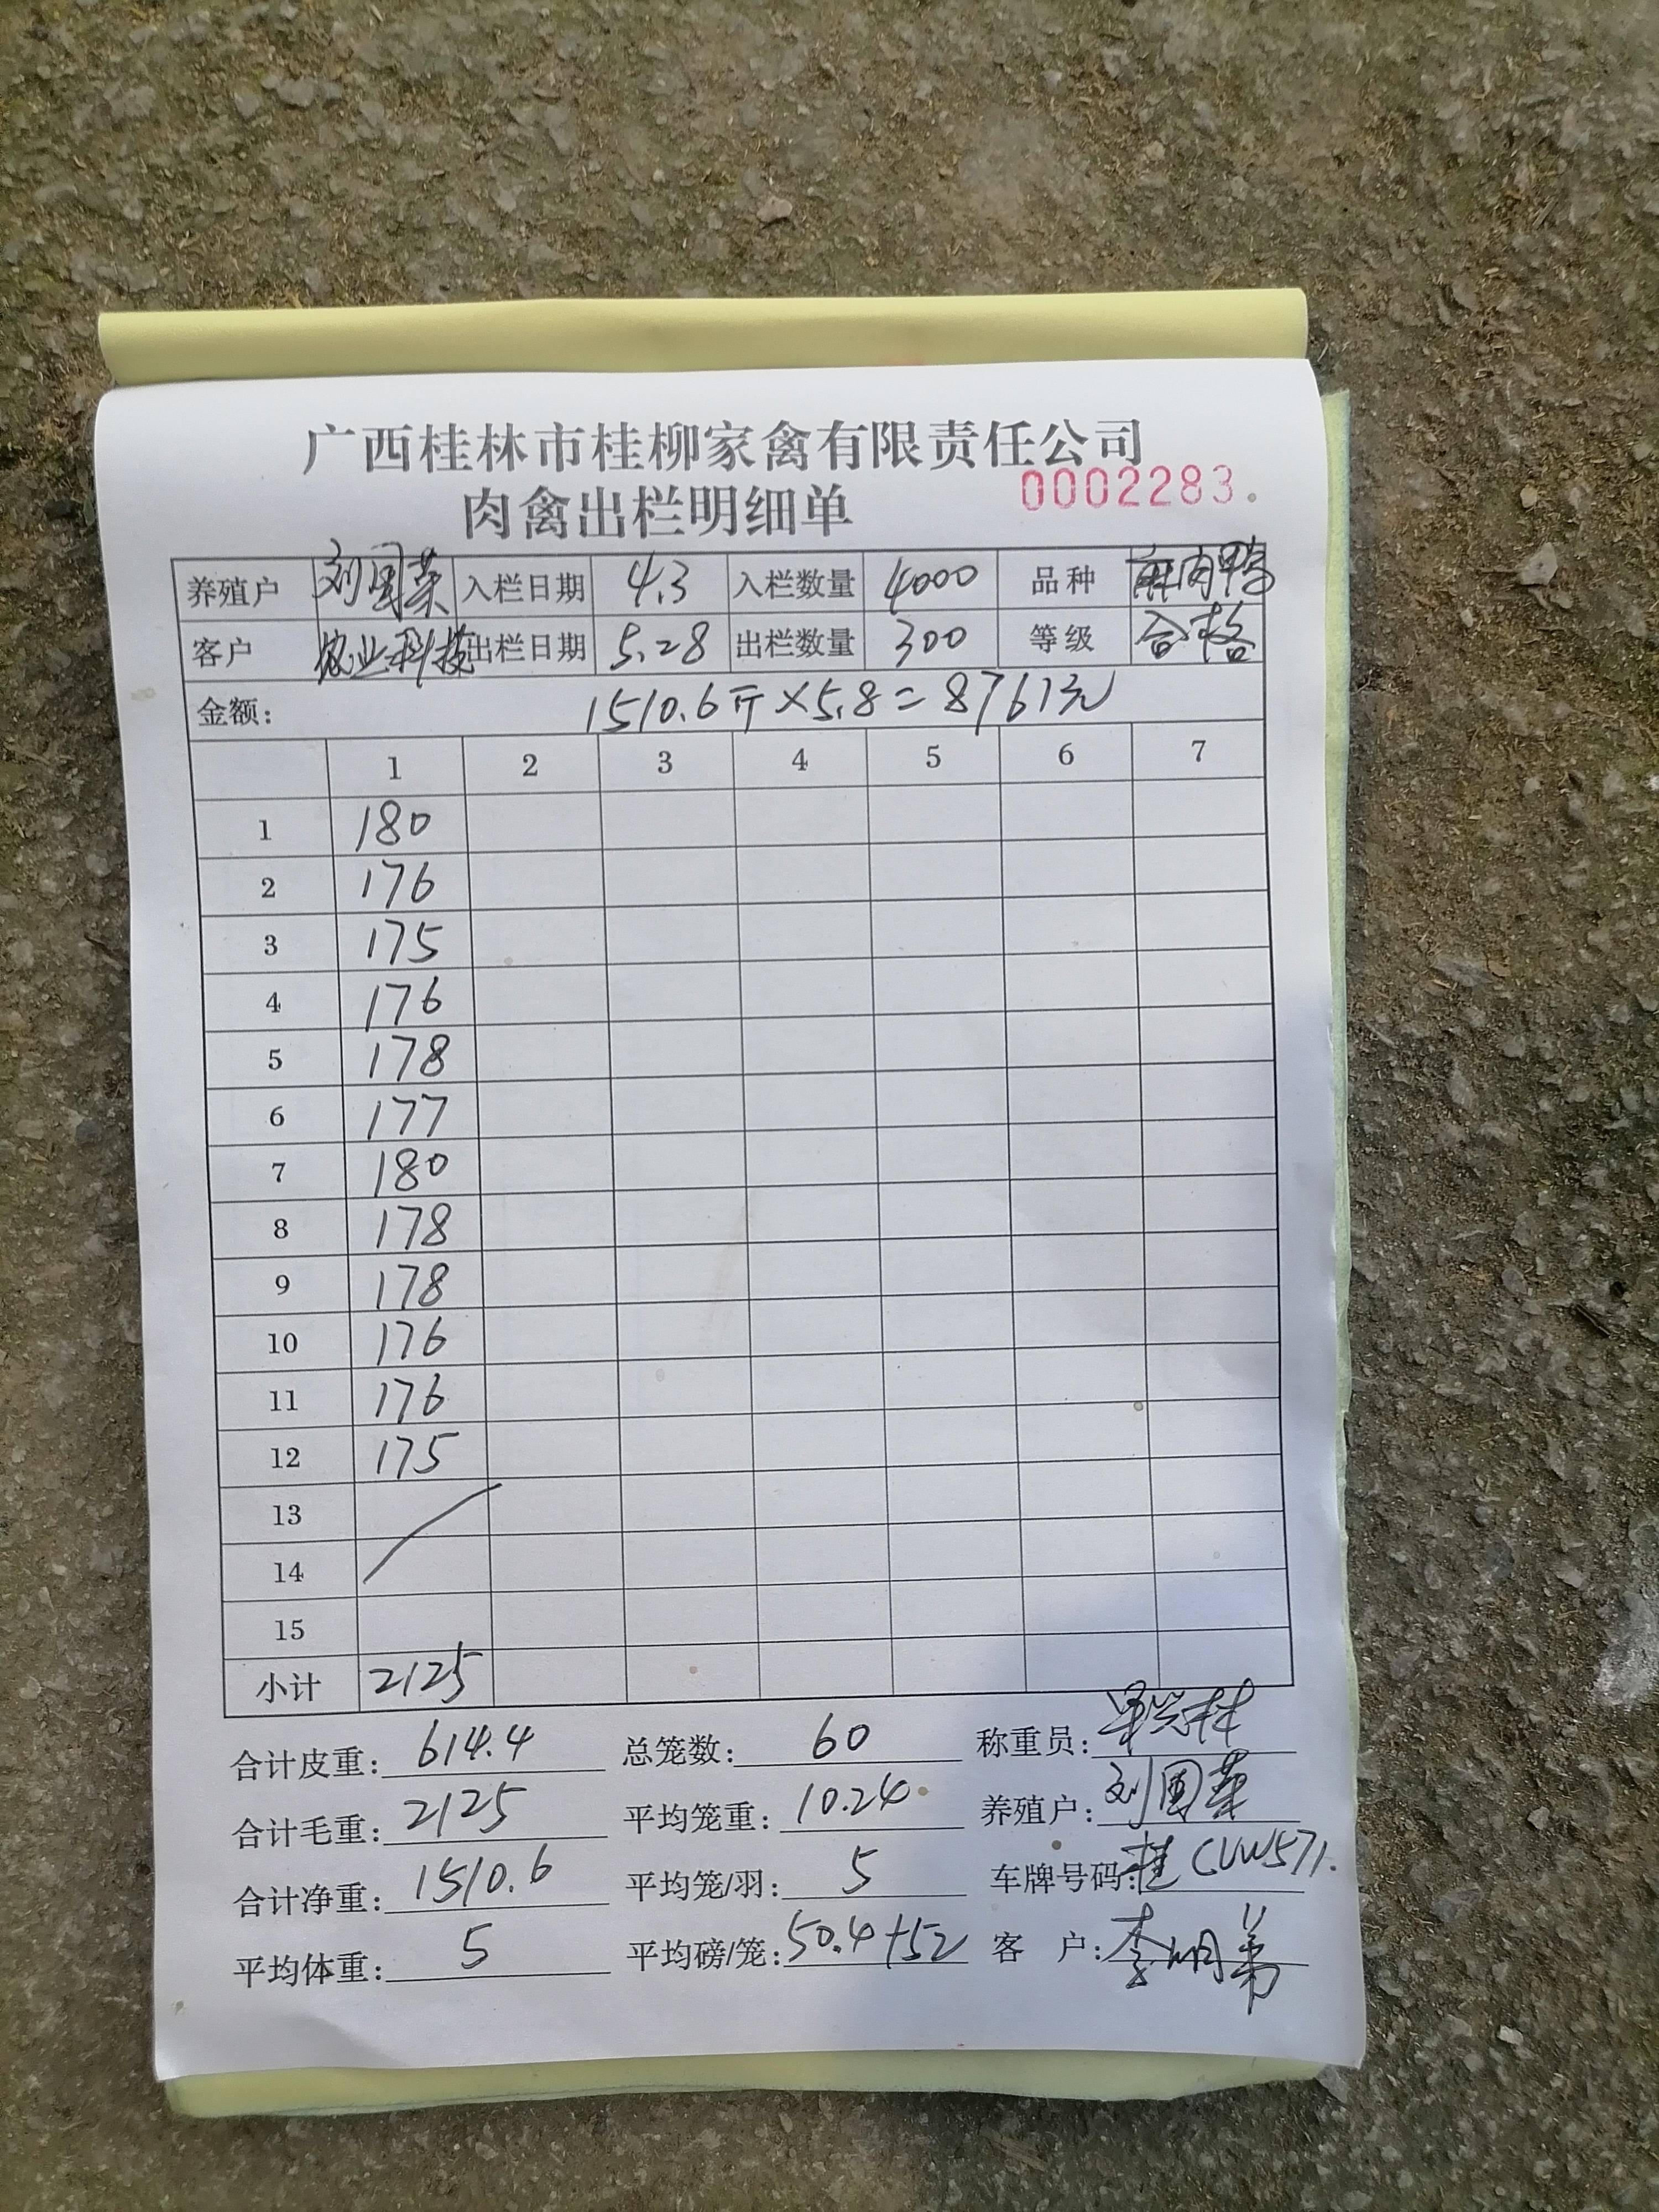 广西桂林市桂柳家禽有限责任公司
肉禽出栏明细单 0002283
养殖户 刘国荣 入栏日期 4.3 入栏数量 4000 品种 麻肉鸭
客户 农业科技 出栏日期 5.28 出栏数量 300 等级 合格
金额: 1510.6斤×5.8=8761元
1 2 3 4 5 6 7
1 180
2 176
3 175
4 176
5 178
6 177
7 180
8 178
9 178
10 176
11 176
12 175
13
14
15
小计 2125
合计皮重: 614.4 总笼数: 60 称重员:
合计毛重: 2125 平均笼重: 10.24 养殖户: 刘国荣
合计净重: 1510.6 平均笼/羽: 5 车牌号码: 桂CUW571
平均体重: 5 平均磅/笼: 50.4+52 客 户: 李明